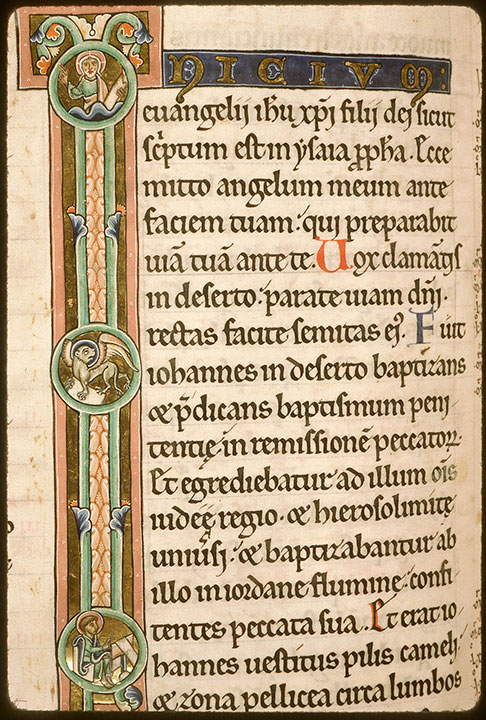 INICIVM:
euangelij ihu xpi filij dei sicut
scptum est in ysaia ppha. Ecce
mitto angelum meum ante
faciem tuam. qui preparabit
uiā tuā ante te. Uox clamātis
in deserto. parate uiam dnj.
rectas facite semitas ej. Fuit
iohannes in deserto baptizans
& p̄dicans baptismum peni
tentię in remissionē peccatoꝝ.
Et egrediebatur ad illum oīs
iudeę regio. & hierosolimitę
uniuersi. & baptizabantur ab
illo in iordane flumine. confi
tentes peccata sua. Et erat io
hannes uestitus pilis camelj.
& zona pellicea circa lumbos